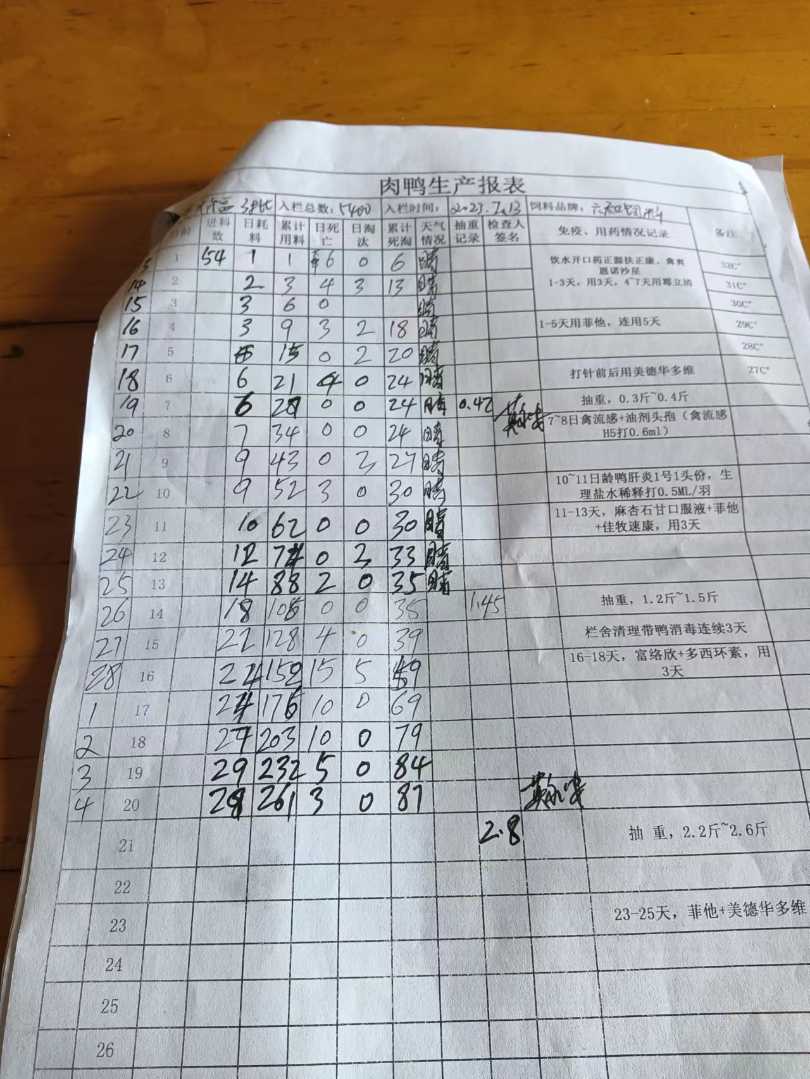 肉鸭生产报表
3批 入栏总数：5400 入栏时间：2023.7.13 饲料品牌：六和饲料
日龄 进料数 日耗料 累计用料 日死亡 日淘汰 累计死淘 天气情况 抽重记录 检查人签名 免疫、用药情况记录 备注
1 54 1 1 6 0 6 晴 饮水开口药正源扶正康，禽爽恩诺沙星 32C°
14 2 2 3 4 3 13 晴 1-3天，用3天，4~7天用霉立消 31C°
15 3 3 6 0 晴 30C°
16 4 3 9 3 2 18 晴 1-5天用菲他，连用5天 29C°
17 5 6 15 0 2 20 晴 28C°
18 6 6 21 4 0 24 晴 打针前后用美德华多维 27C°
19 7 6 27 0 0 24 晴 0.42 抽重，0.3斤~0.4斤
20 8 7 34 0 0 24 晴 7~8日禽流感+油剂头孢（禽流感H5打0.6ml）
21 9 9 43 0 3 27 晴
22 10 9 52 3 0 30 晴 10~11日龄鸭肝炎1号1头份，生理盐水稀释打0.5ML/羽
23 11 10 62 0 0 30 晴 11-13天，麻杏石甘口服液+菲他+佳牧速康，用3天
24 12 12 74 0 3 33 晴
25 13 14 88 2 0 35 晴
26 14 18 106 0 0 35 1.45 抽重，1.2斤~1.5斤
27 15 22 128 4 0 39 栏舍清理带鸭消毒连续3天
28 16 24 152 15 5 59 16-18天，富络欣+多西环素，用3天
1 17 24 176 10 0 69
2 18 27 203 10 0 79
3 19 29 232 5 0 84
4 20 29 261 3 0 87
21 2.8 抽 重，2.2斤~2.6斤
22
23 23-25天，菲他+美德华多维
24
25
26